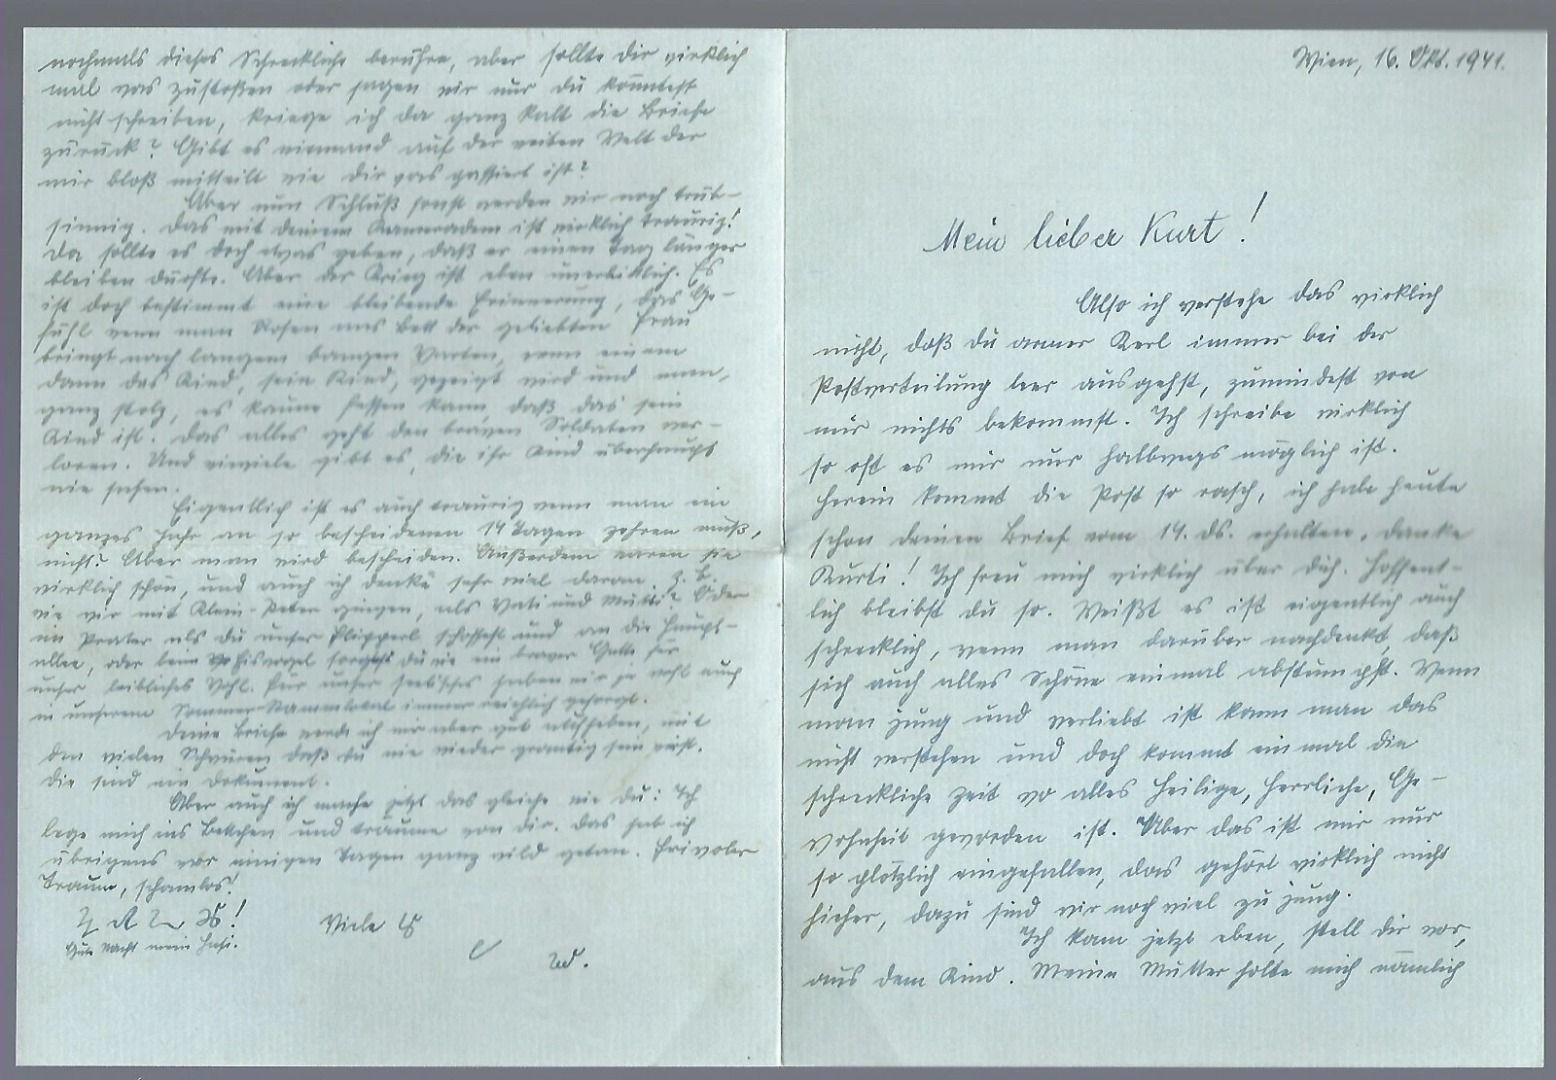 Wien, 16. Okt. 1941.
Mein lieber Kurt!
Also ich verstehe das wirklich
nicht, daß du armer Kerl immer bei der
Postverteilung leer ausgehst, zumindest von
mir nichts bekommst. Ich schreibe wirklich
so oft es mir nur halbwegs möglich ist.
Herein kommt die Post so rasch, ich habe heute
schon deinen Brief vom 14. ds. erhalten, danke
Kurti! Ich freu mich wirklich über dich. Hoffent-
lich bleibst du so. Weißt es ist eigentlich auch
schrecklich, wenn man darüber nachdenkt, daß
sich auch alles Schöne einmal abstumpft. Wenn
man jung und verliebt ist kann man das
nicht verstehen und doch kommt einmal die
schreckliche Zeit wo alles Heilige, Herrliche, Ge-
wohnheit geworden ist. Aber das ist mir nur
so plötzlich eingefallen, das gehört wirklich nicht
hieher, dazu sind wir noch viel zu jung.
Ich kam jetzt eben, stell dir vor,
aus dem Kino. Meine Mutter holte mich nämlich
nochmals dieses Schreckliche berühre, aber sollte dir wirklich
mal was zustoßen oder sagen wir nur du könntest
nicht schreiben, kriege ich da ganz kalt die Briefe
zurück? Gibt es niemand auf der weiten Welt der
mir bloß mitteilt wie dir was passiert ist?
Aber nun Schluß sonst werden wir noch trüb-
sinnig. Das mit deinem Kameraden ist wirklich traurig!
Da sollte es doch etwas geben, daß er einen Tag länger
bleiben dürfte. Aber der Krieg ist eben unerbittlich. Es
ist doch bestimmt eine bleibende Erinnerung, das Ge-
fühl wenn man Rosen ans Bett der geliebten Frau
bringt nach langem bangen Warten, wenn einem
dann das Kind, sein Kind, gezeigt wird und man,
ganz stolz, es kaum fassen kann daß das sein
Kind ist. Das alles geht den braven Soldaten ver-
loren. Und wieviele gibt es, die ihr Kind überhaupt
nie sehen.
Eigentlich ist es auch traurig wenn man ein
ganzes Jahr an so bescheidenen 14 Tagen zehren muß,
nicht? Aber man wird bescheiden. Außerdem waren sie
wirklich schön, und auch ich denke sehr viel daran. z. B.
wie wir mit Klein-Peter gingen, als Vati und Mutti? Oder
im Prater als du unser Flipperl schossest und an die Haupt-
allee, oder beim Eisvogel sorgtest du wie ein braver Gatte für
unser leibliches Wohl. Für unser seelisches haben wir ja wohl auch
in unserem Sommer-Stammlokal immer reichlich gesorgt.
Deine Briefe werde ich mir aber gut aufheben, mit
den vielen Schwüren daß du nie wieder grantig sein wirst.
Die sind ein Dokument.
Aber auch ich mache jetzt das gleiche wie du: Ich
lege mich ins Bettchen und träume von dir. Das hab ich
übrigens vor einigen Tagen ganz wild getan. Frivoler
Traum, schamlos!
Viele
Gute Nacht mein Hasi.